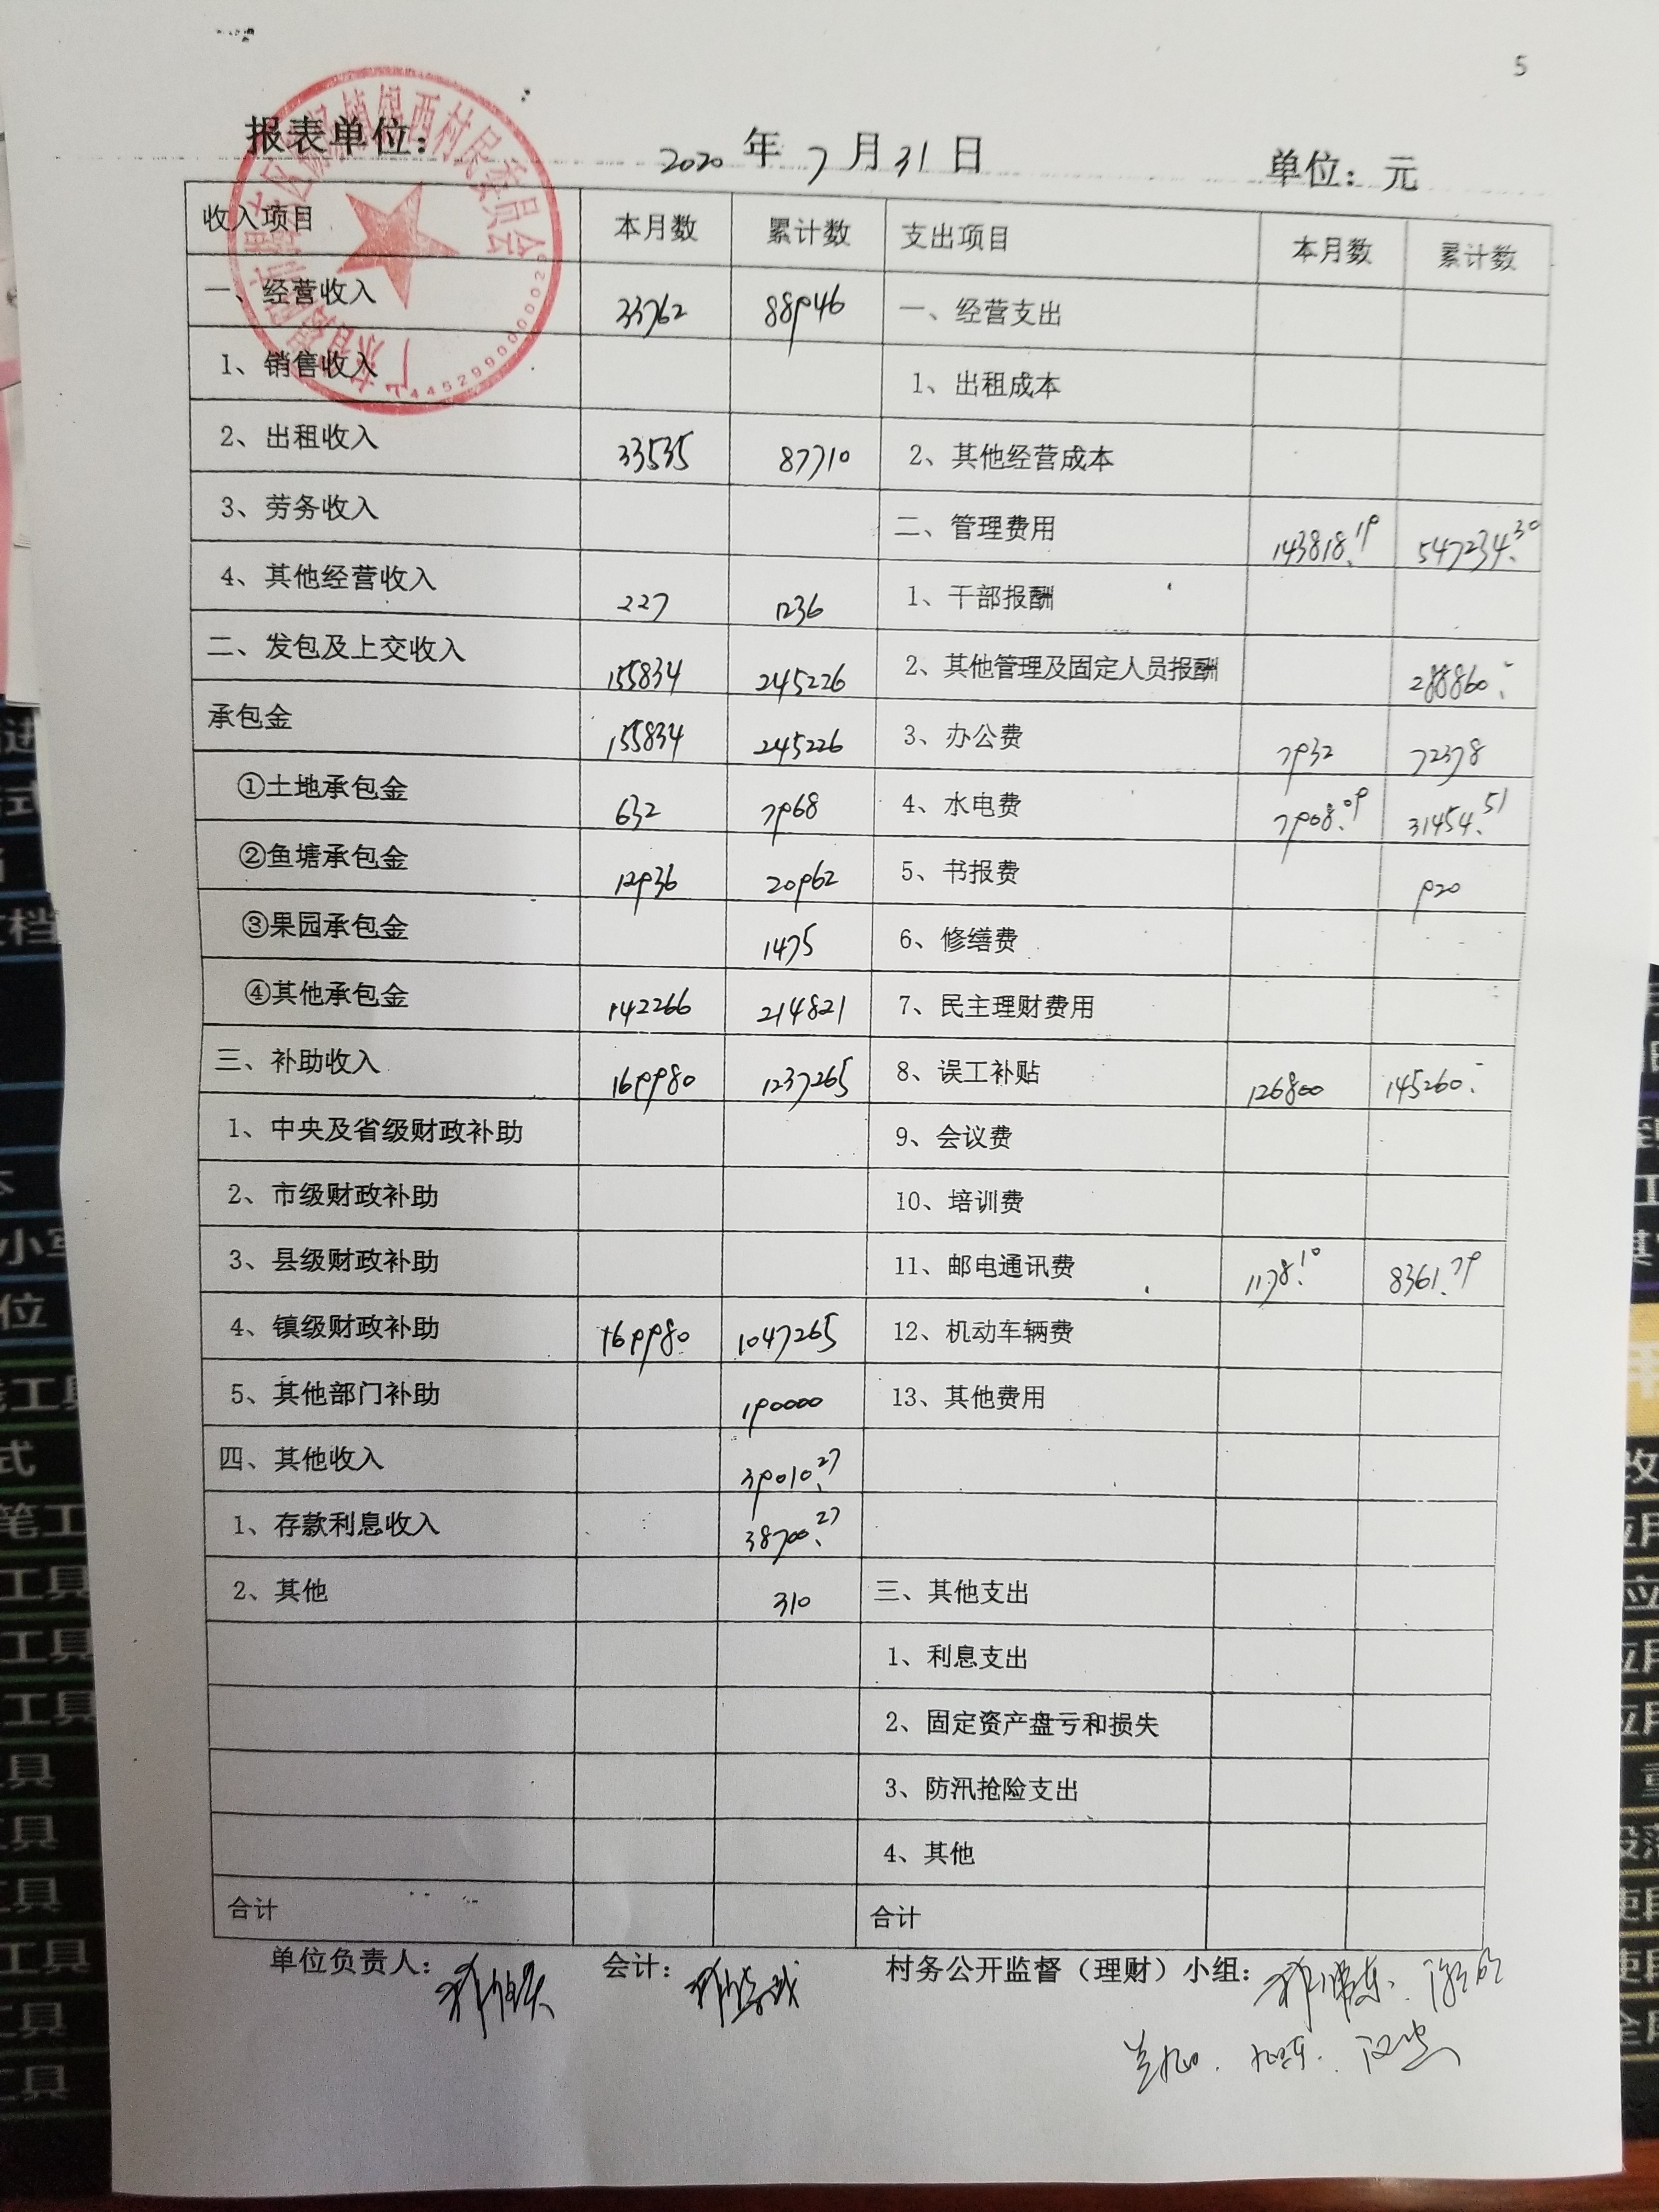 5
报表单位：
2020 年 7 月 31 日 单位：元
收入项目 本月数 累计数 支出项目 本月数 累计数
一、经营收入 33762 88946 一、经营支出
1、销售收入 1、出租成本
2、出租收入 33535 87710 2、其他经营成本
3、劳务收入 二、管理费用 143818.19 547234.30
4、其他经营收入 227 1236 1、干部报酬
二、发包及上交收入 155834 245226 2、其他管理及固定人员报酬 288860.-
承包金 155834 245226 3、办公费 7932 72378
①土地承包金 632 7968 4、水电费 7908.09 31454.51
②鱼塘承包金 12936 20962 5、书报费 920
③果园承包金 1475 6、修缮费
④其他承包金 142266 214821 7、民主理财费用
三、补助收入 169980 1237265 8、误工补贴 126800 145260.-
1、中央及省级财政补助 9、会议费
2、市级财政补助 10、培训费
3、县级财政补助 11、邮电通讯费 1178.10 8361.79
4、镇级财政补助 169980 1047265 12、机动车辆费
5、其他部门补助 190000 13、其他费用
四、其他收入 39010.27
1、存款利息收入 38700.27
2、其他 310 三、其他支出
1、利息支出
2、固定资产盘亏和损失
3、防汛抢险支出
4、其他
合计 合计
单位负责人： 会计： 村务公开监督（理财）小组：